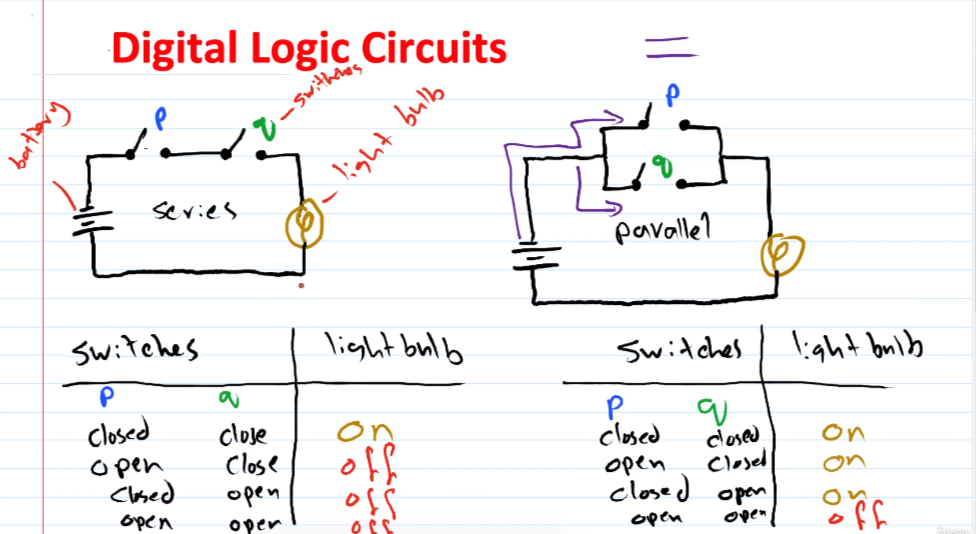 Digital Logic Circuits
battery
p
q
switches
light bulb
series
p
q
parallel
switches light bulb
p q
closed close on
open close off
closed open off
open open off
switches light bulb
p q
closed closed on
open closed on
closed open on
open open off